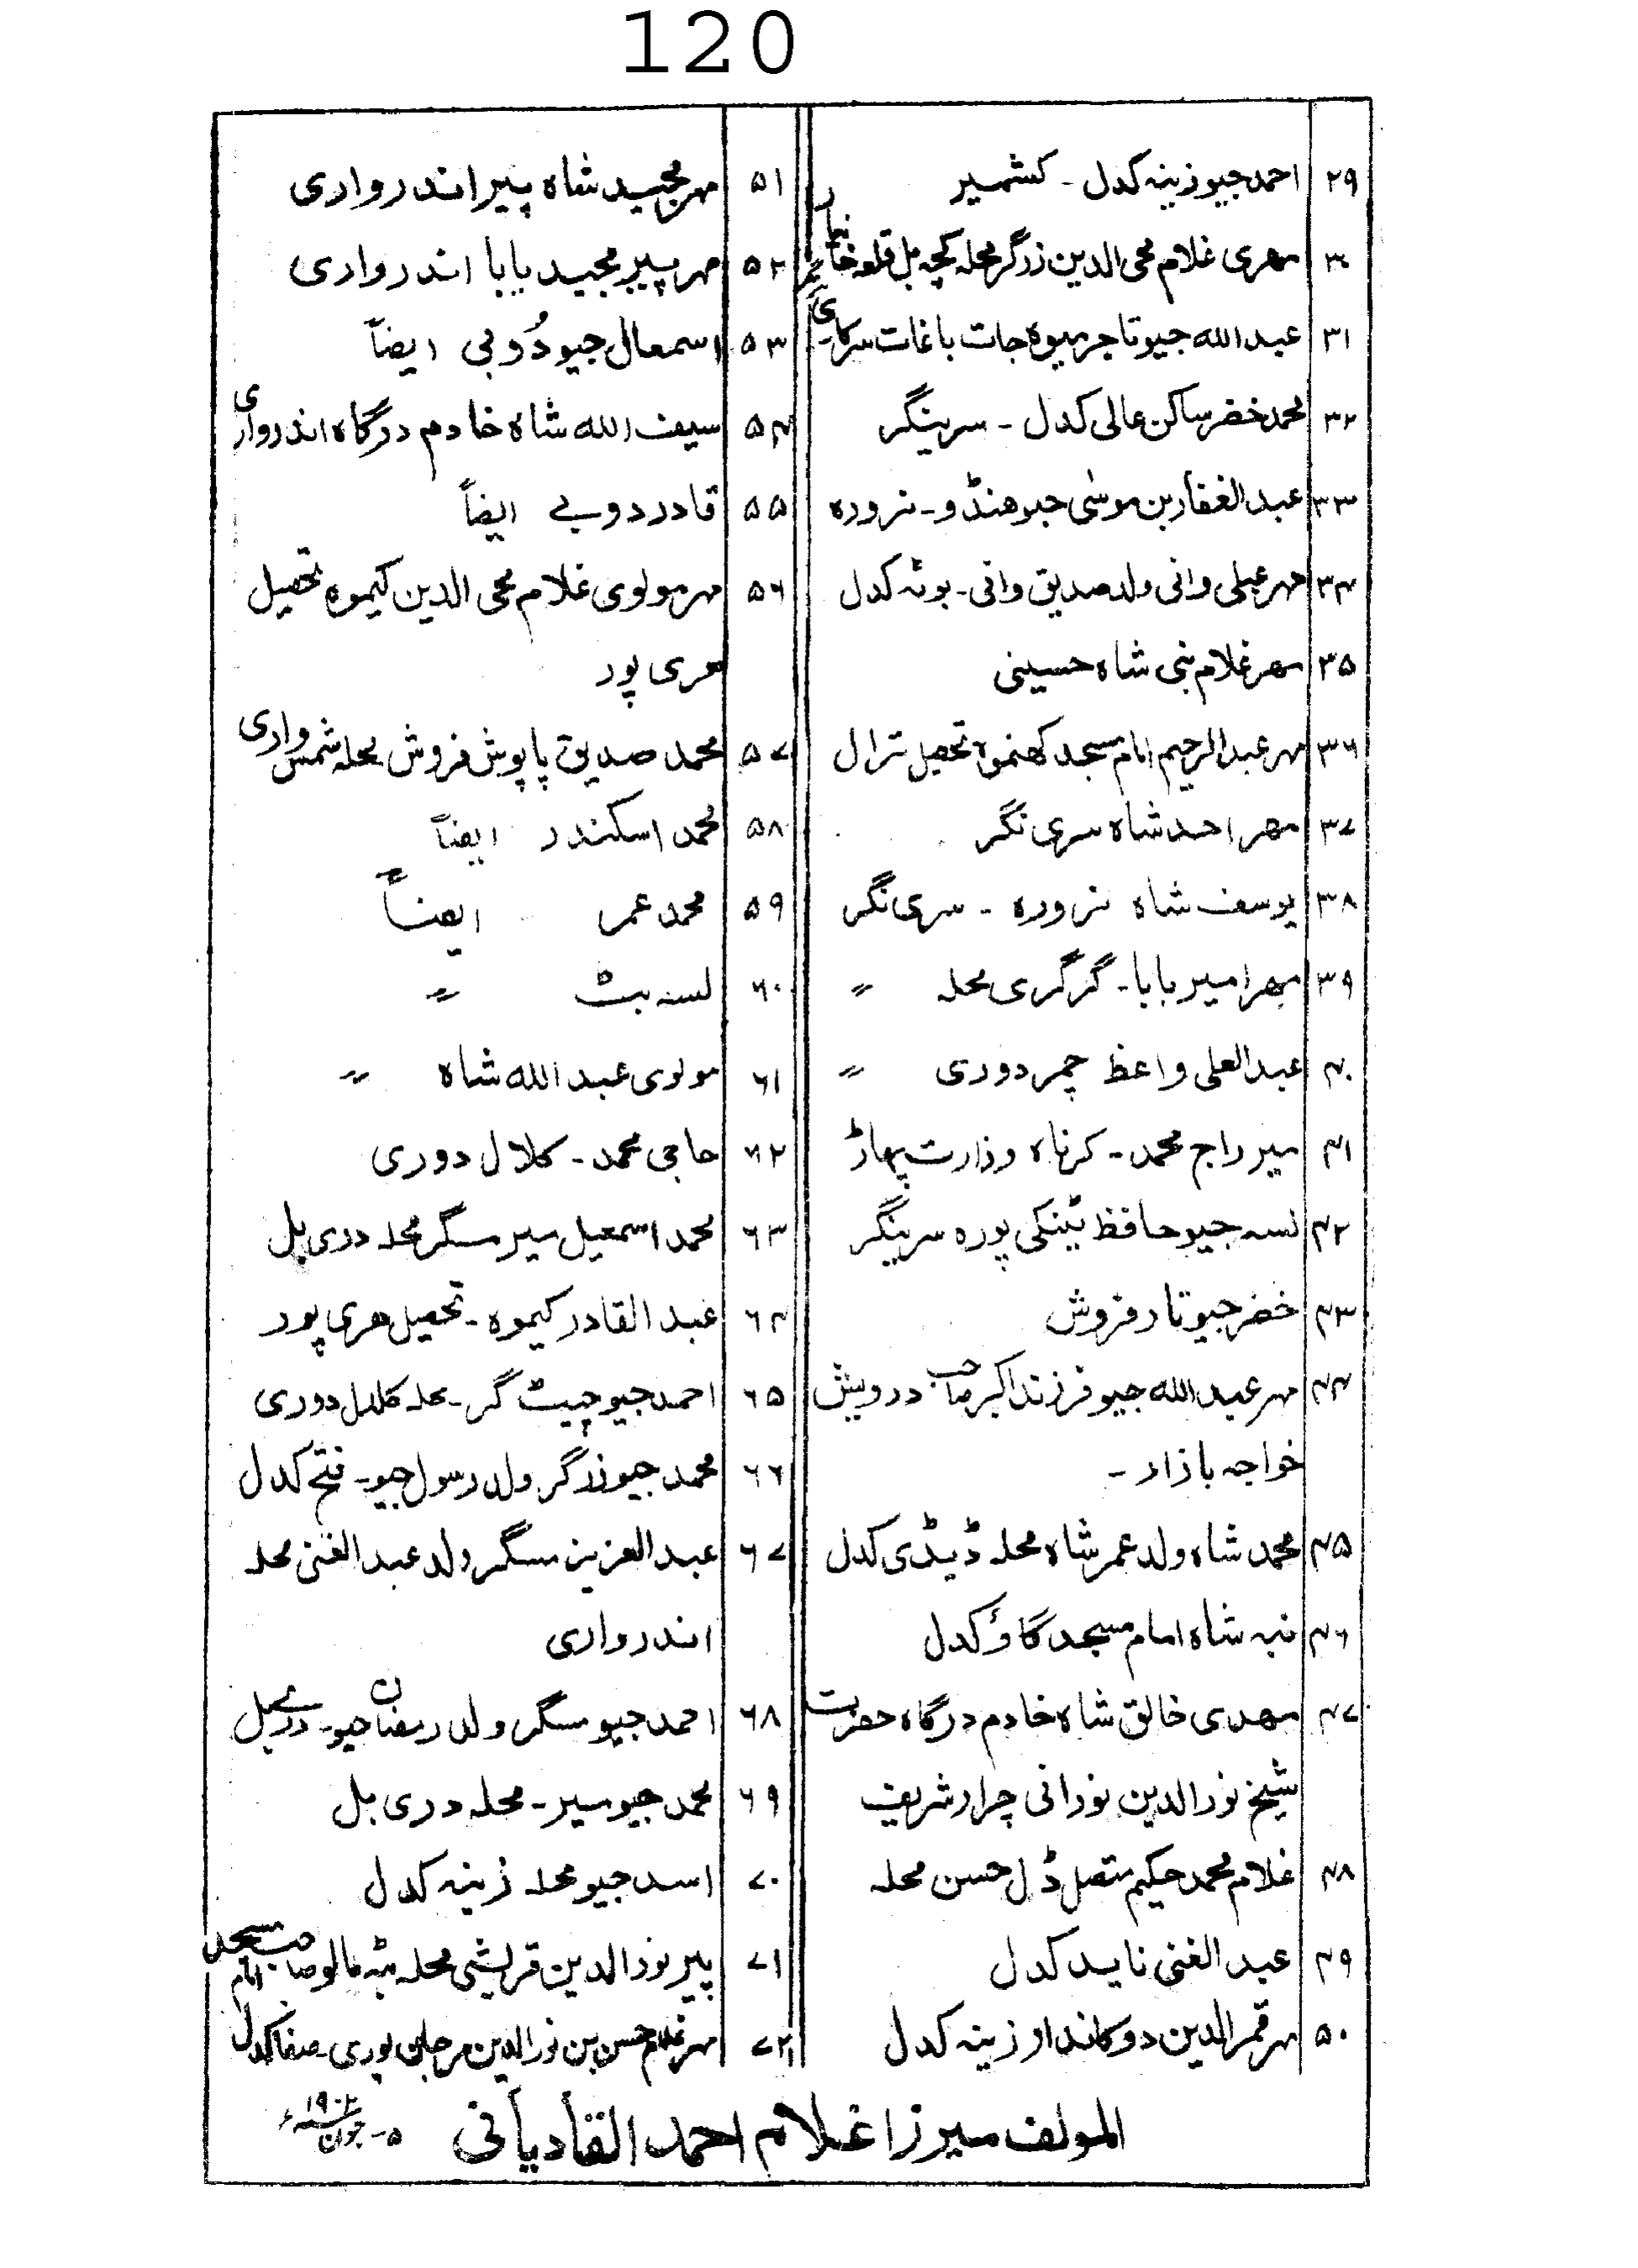 120
۲۹ احمد جیو زینہ کدل - کشمیر
۳۰ مہری غلام محی الدین زرگر محلہ کچہ بل قلعہ خانیار
۳۱ عبد اللہ جیو تاجر میوہ جات باغات سرکاری
۳۲ محمد خضر ساکن عالی کدل - سرینگر
۳۳ عبد الغفار بن موسٰی جیو ھنڈو - نرورہ
۳۴ مہر عبلی وانی ولد صدیق وانی - بوٹہ کدل
۳۵ مہر غلام نبی شاہ حسینی
۳۶ مہر عبد الرحیم امام مسجد کھنموہ تحصیل ترال
۳۷ مہر احد شاہ سری نگر
۳۸ یوسف شاہ نرورہ - سری نگر
۳۹ مہر امیر بابا - گرگری محلہ 〃
۴۰ عبد العلی واعظ چمردوری 〃
۴۱ میر راج محمد - کرناہ وزارت پہاڑ
۴۲ لسہ جیو حافظ ٹینکی پورہ سرینگر
۴۳ خضر جیو تار فروش
۴۴ مہر عبد اللہ جیو فرزند اکبر صاحب درویش
خواجہ بازار -
۴۵ محمد شاہ ولد عمر شاہ محلہ ڈیڈی کدل
۴۶ نبہ شاہ امام مسجد گاؤ کدل
۴۷ مہدی خالق شاہ خادم درگاہ حضرت
شیخ نور الدین نورانی چرار شریف
۴۸ غلام محمد حکیم متصل ڈل حسن محلہ
۴۹ عبد الغنی ناید کدل
۵۰ مہر قمر الدین دوکاندار زینہ کدل
۵۱ مہر مجید شاہ پیر اندرواری
۵۲ مہر پیر مجید بابا اندرواری
۵۳ اسمعال جیو دُوبی ایضاً
۵۴ سیف اللہ شاہ خادم درگاہ اندرواری
۵۵ قادر دوبے ایضاً
۵۶ مہر مولوی غلام محی الدین کیموہ تحصیل
ھری پور
۵۷ محمد صدیق پاپوش فروش محلہ شمس واری
۵۸ محمد اسکندر ایضاً
۵۹ محمد عمر ایضاً
۶۰ لسہ بٹ 〃
۶۱ مولوی عبد اللہ شاہ 〃
۶۲ حاجی محمد - کلال دوری
۶۳ محمد اسمعیل میر مسگر محلہ دری بل
۶۴ عبد القادر کیموہ - تحصیل ھری پور
۶۵ احمد جیو چیٹ گر - محلہ کلال دوری
۶۶ محمد جیو زرگر ولد رسول جیو - فتح کدل
۶۷ عبد العزیز مسگر ولد عبد الغنی محلہ
اندرواری
۶۸ احمد جیو مسگر ولد رمضان جیو - دری بل
۶۹ محمد جیو میر - محلہ دری بل
۷۰ اسد جیو محلہ زینہ کدل
۷۱ پیر نور الدین قریشی محلہ بٹہ مالو صاحب امام مسجد
۷۲ مہر غلام حسن بن نور الدین مرجان پوری - صفا کدل
المولف میرزا غلام احمد القادیانی ۵- جون ۱۹۰۲ء